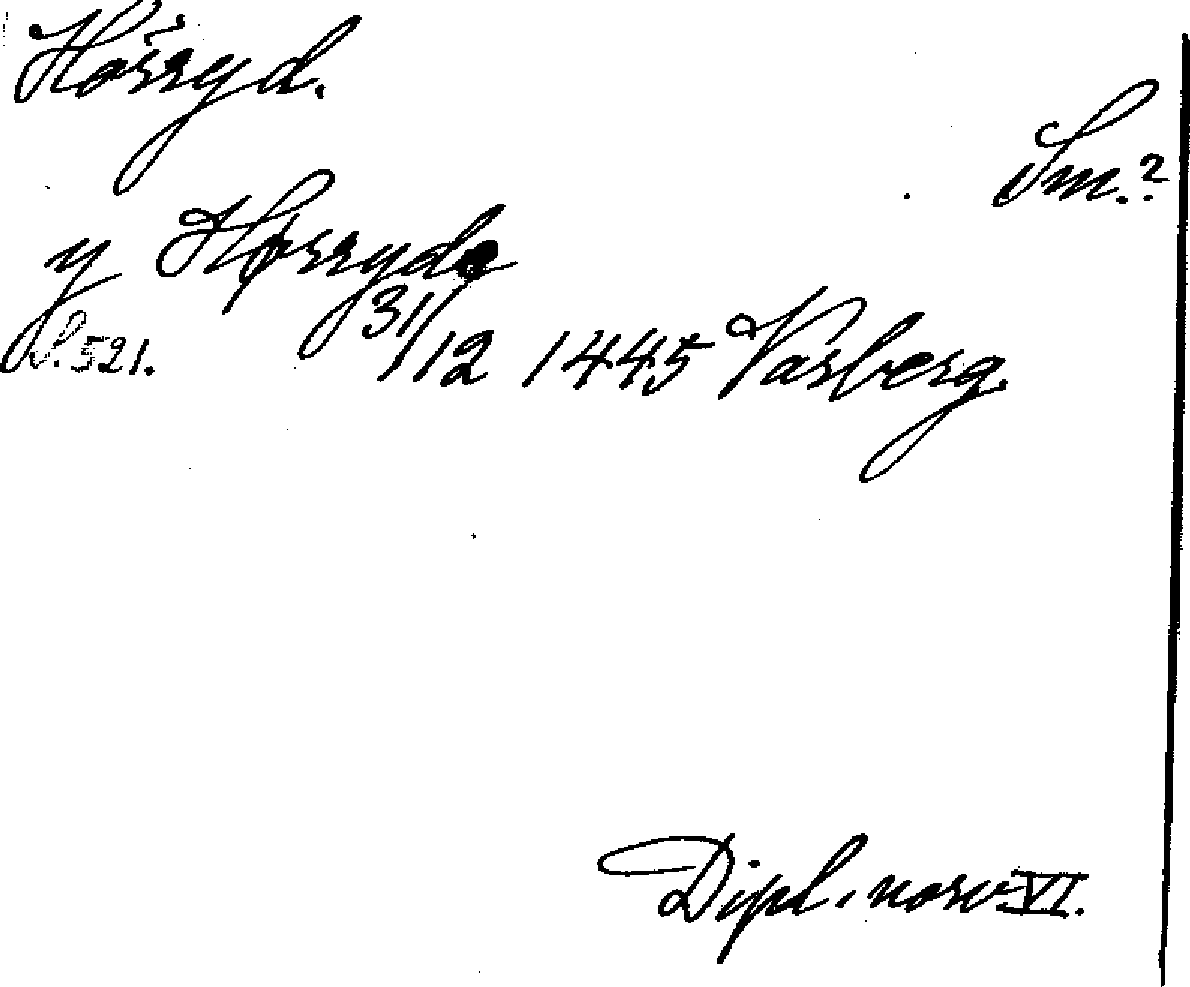 Hörryd.
Sm.?
y Hørryde
S. 521. 31/12 1445 Varberg.
Dipl. norv. VI.